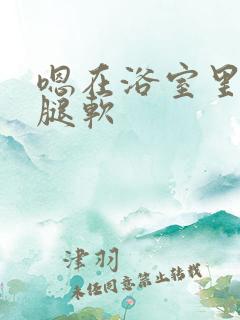 嗯在浴室里
腿软
津羽
未经同意禁止转载